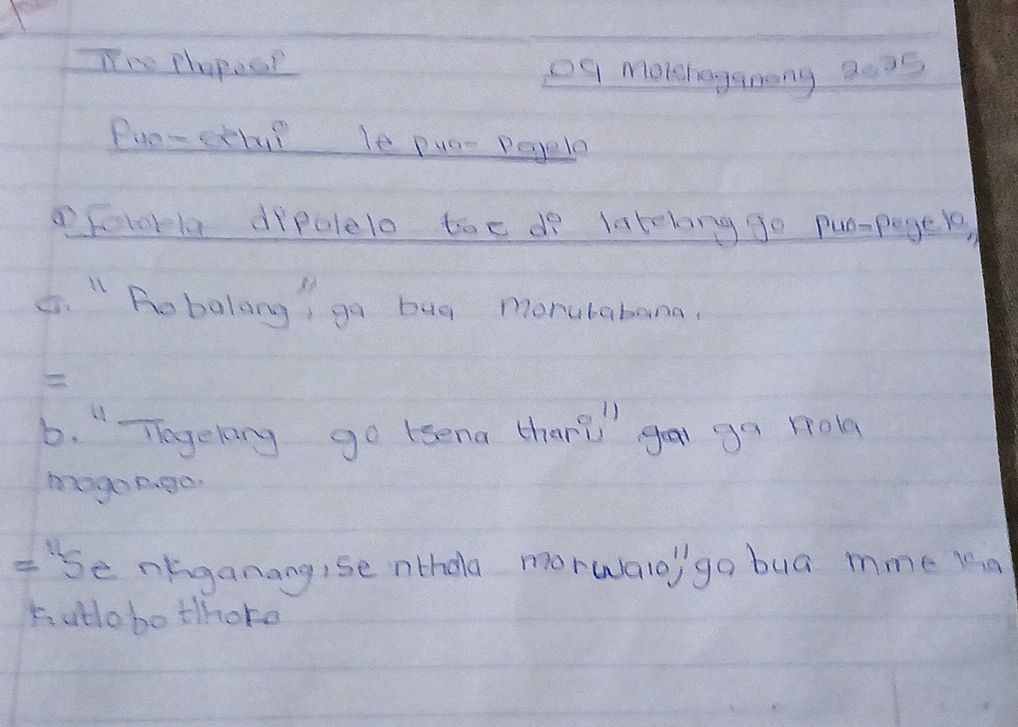 Tiro Phaposi 09 Motsheganang 2025
Puo-sebui le puo-pegelo
① Fetolela dipolelo tse di latelang go puo-pegelo,,
a. "Robalang", ga bua morutabana.
=
b. "Tlogelang go tsena thari," ga rola
mogongo.
= "Se nkganang, se nthola morwalo," go bua mme ka
kutlobotlhoko